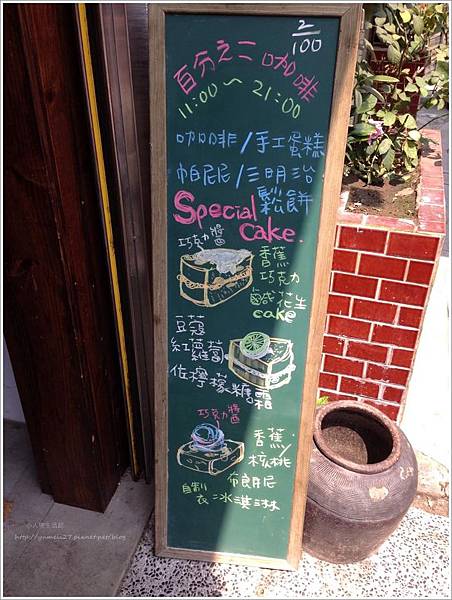 2/100
百分之二咖啡
11:00～21:00
咖咖啡/手工蛋糕
帕尼尼/三明治
鬆餅
Special
cake.
巧克力醬
香蕉
巧克力
鹹花生
cake
豆蔻
紅蘿蔔
佐檸檬糖霜
巧克力醬
香蕉/
核桃
布朗尼
自製
冰淇淋
小人物生活誌
http://yumeis27.pixnet.net/blog